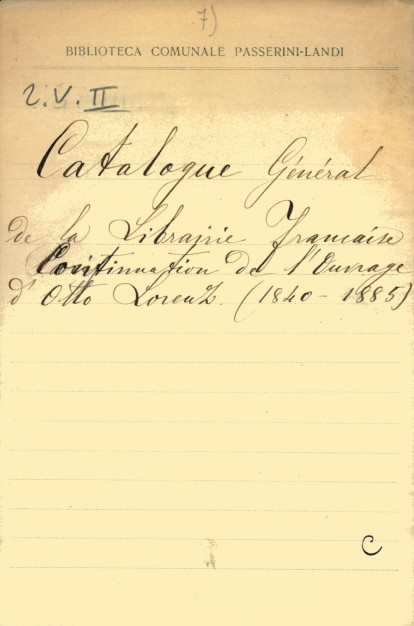 7)
BIBLIOTECA COMUNALE PASSERINI-LANDI
2.V.II
Catalogue Général
de la Librairie Francaise
Continuation de l'Ouvrage
d'Otto Lorenz. (1840-1885)
C